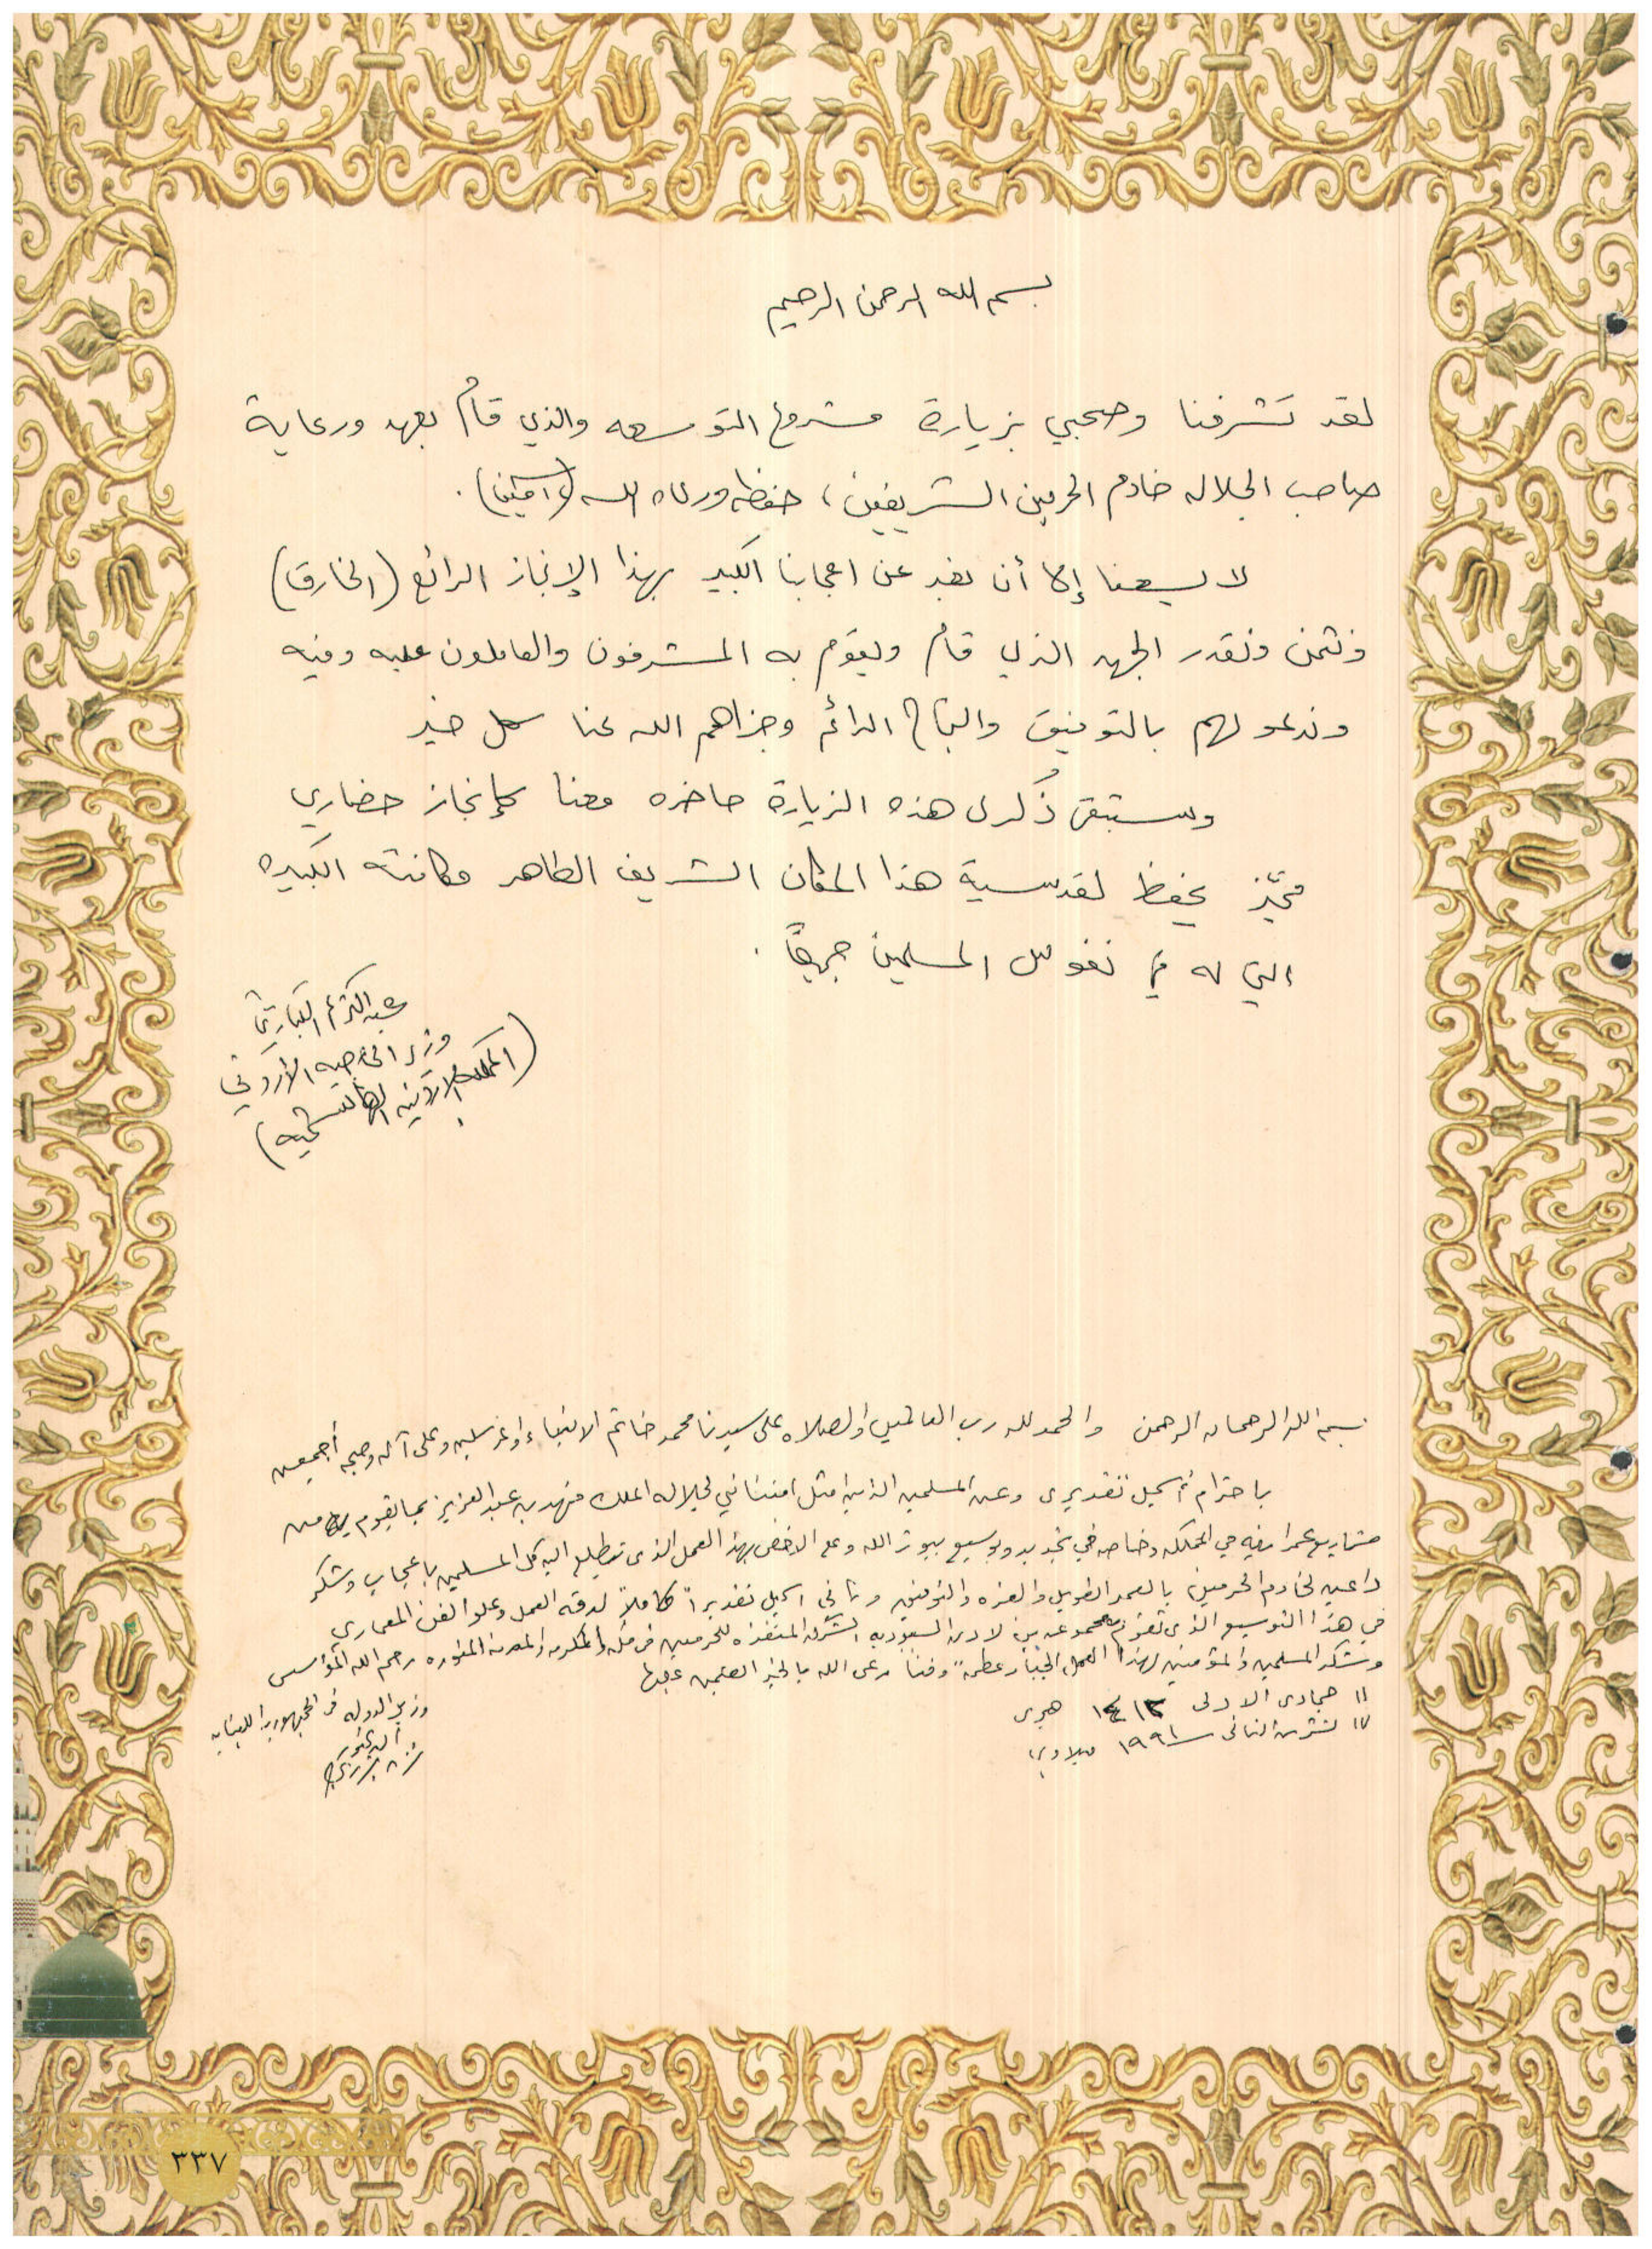 بسم الله الرحمن الرحيم
لقد تشرفنا وصحبي بزيارة مشروع التوسعه والذي قام بعهد ورعاية
صاحب الجلاله خادم الحرمين الشريفين، حفظه ورعاه الله (آمين).
لا يسعنا إلا أن نعبر عن اعجابنا الكبير بهذا الإنجاز الرائع (الخارق)
ونثمن ونقدر الجهد الذي قام ويقوم به المشرفون والعاملون عليه وفيه
وندعو لهم بالتوفيق والنجاح الدائم وجزاهم الله عنا كل خير
وستبقى ذكرى هذه الزيارة حاضره معنا كإنجاز حضاري
مميّز يحفظ لقدسية هذا المكان الشريف الطاهر مكانته الكبيره
التي له في نفوس المسلمين جميعًا.
عبد الكريم الكباريتي
وزير الخارجيه الأردني
(المملكه الاردنيه الهاشميه)
بسم الله الرحمان الرحمن والحمد لله رب العالمين والصلاه على سيدنا محمد خاتم الانبياء والمرسلين وعلى آله وصحبه أجمعين
باحترام أسجل تقديري وعن المسلمين امتناني لجلاله الملك فهد بن عبد العزيز بما يقوم به من
مشاريع عمرانيه في المملكه وخاصه في تجديد وتوسيع بيوت الله وعلى الاخص بهذا العمل الذي تتطلع اليه كل المسلمين باعجاب وشكر
داعين لخادم الحرمين بالعمر الطويل والعزه والتوفيق وانني اسجل تقديراً كاملاً لدقه العمل وعلو الفن المعماري
في هذا التوسيع الذي تقوم به مجموعه بن لادن السعوديه الشركه المنفذه للحرمين في مكه المكرمه والمدينه المنوره رحم الله المؤسس
وشكر المسلمين والمؤمنين لهذا العمل الجبار عظمةً وفناً رعى الله بالخير
١١ جمادى الاولى ١٤١٢ هجري
١٧ تشرين الثاني ١٩٩١ ميلادي
وزير الدوله في الجمهوريه اللبنانيه
الدكتور
٣٣٧